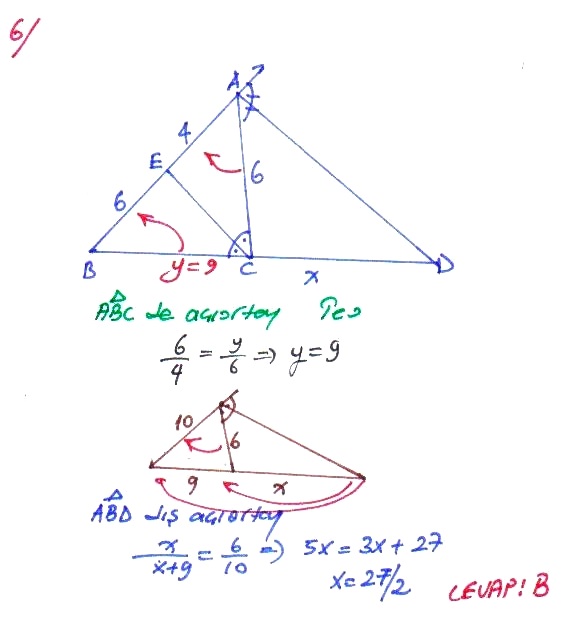 6/
A
4
E
6
6
B
y=9
C
x
D
ABC de açıortay Teo
6/4 = y/6 ⇒ y=9
10
6
9
x
ABD dış açıortay
x/x+9 = 6/10 ⇒ 5x = 3x + 27
x = 27/2
CEVAP: B